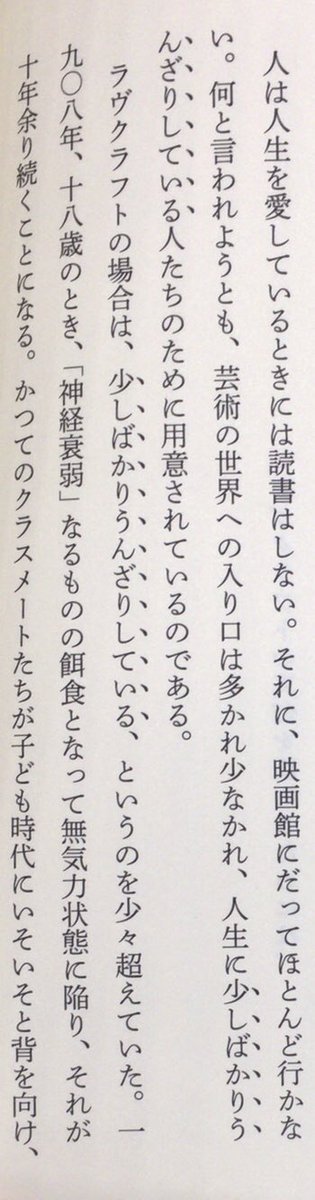 人は人生を愛しているときには読書はしない。それに、映画館にだってほとんど行かな
い。何と言われようとも、芸術の世界への入り口は多かれ少なかれ、人生に少しばかりう
んざりしている人たちのために用意されているのである。
ラヴクラフトの場合は、少しばかりうんざりしている、というのを少々超えていた。一
九〇八年、十八歳のとき、「神経衰弱」なるものの餌食となって無気力状態に陥り、それが
十年余り続くことになる。かつてのクラスメートたちが子ども時代にいそいそと背を向け、